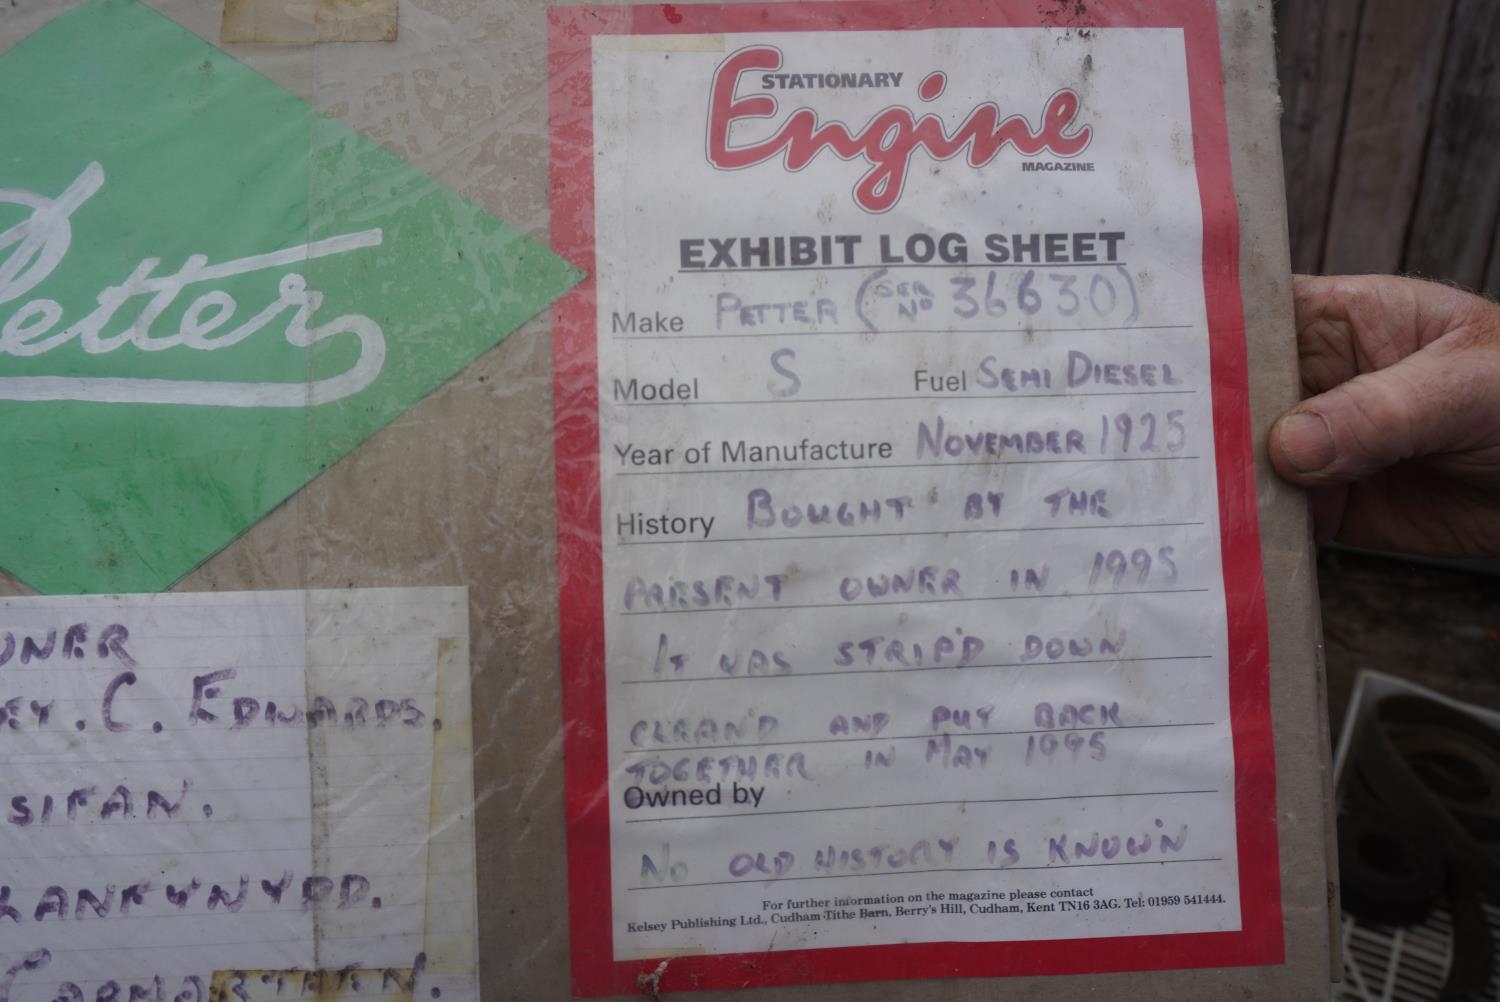 Petter
STATIONARY
Engine
MAGAZINE
EXHIBIT LOG SHEET
Make PETTER (SER NO 36630)
Model S Fuel SEMI DIESEL
Year of Manufacture NOVEMBER 1925
History BOUGHT BY THE
PRESENT OWNER IN 1995
IT WAS STRIP'D DOWN
CLEAN'D AND PUT BACK
TOGETHER IN MAY 1995
Owned by
NO OLD HISTORY IS KNOW'N
For further information on the magazine please contact
Kelsey Publishing Ltd., Cudham Tithe Barn, Berry's Hill, Cudham, Kent TN16 3AG. Tel: 01959 541444.
C. EDWARDS.
CARMARTHEN.